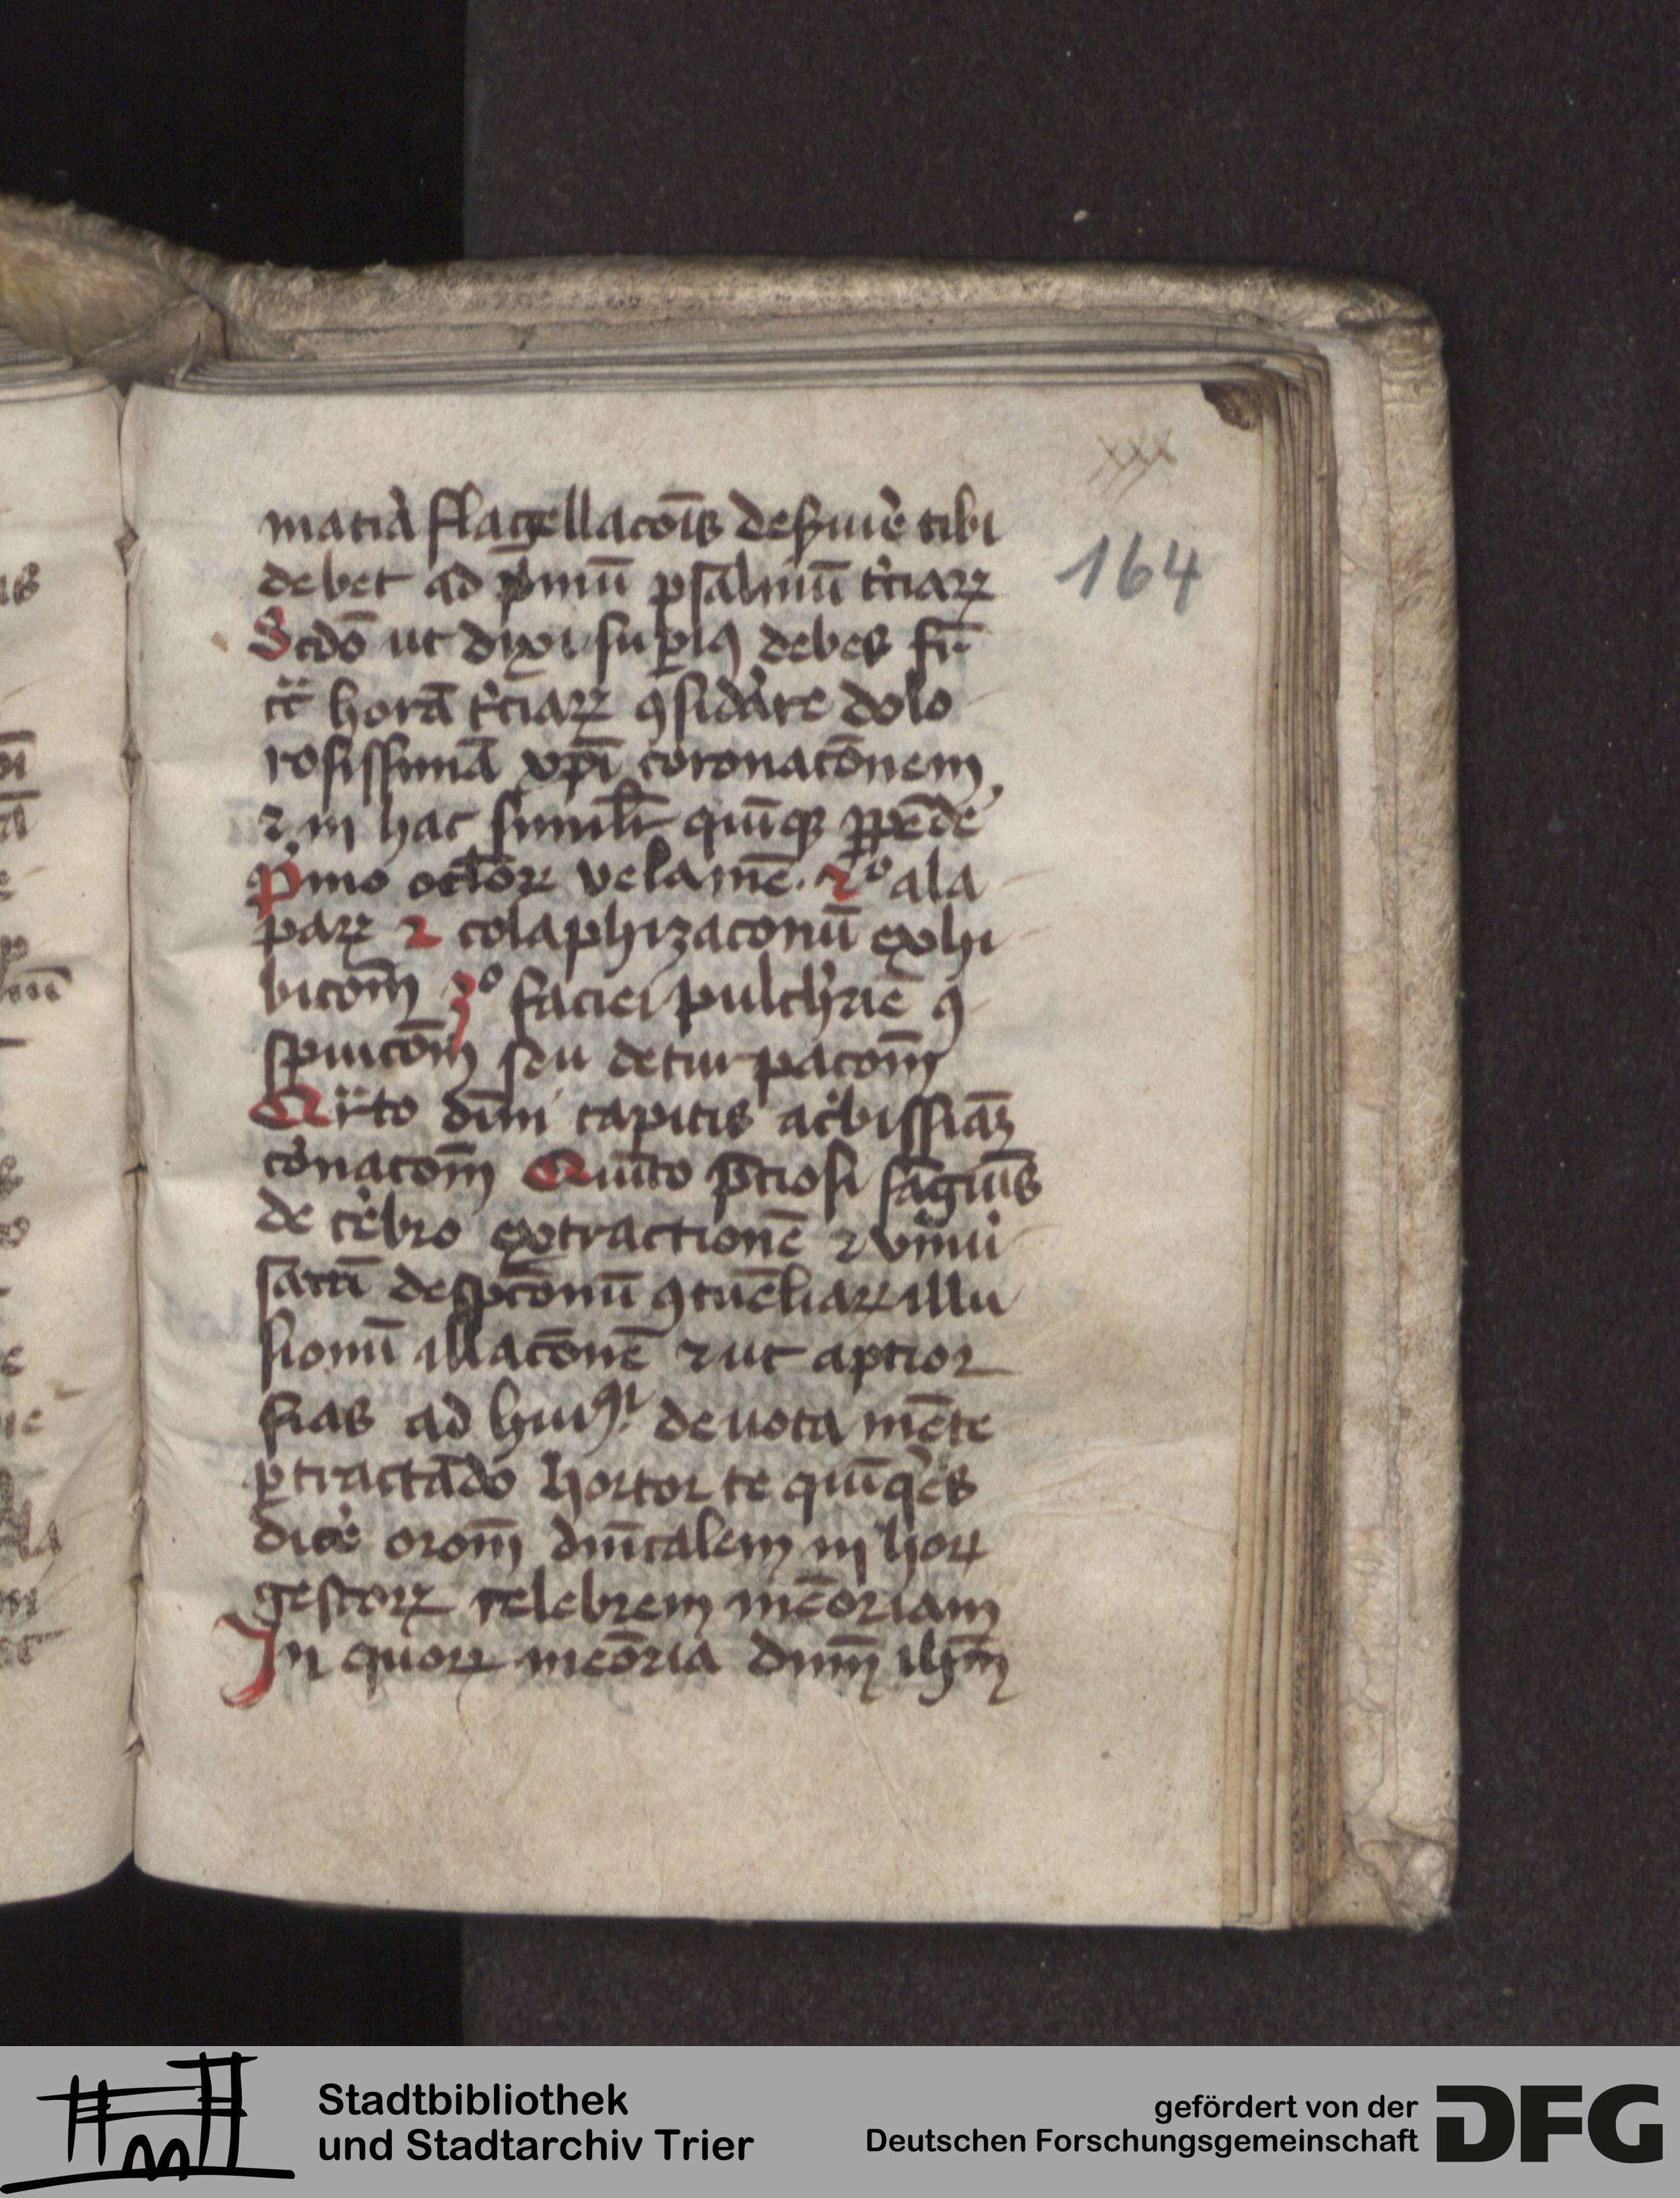 xxx
164
matia᷑ flagellacōis deſ᷑uire tibi
debet ad p̄mū pſalmū t᷑ciaꝝ
Scdō ut dixi ſuꝑiꝰ debes
horā t᷑ciaꝝ ꝯſid᷑are dolo
roſiſſimā xp̄i coronacōnem
⁊ in hac ſimilr̄ quīqꝫ ꝑpēde
P᷑mo oct̄oꝝ velamē. 2º ala
paꝝ ⁊ colaphizaconū exhi
bicom̄ 3º faciei pulch᷑rie ꝯ
ſpuicōm̄ ſeu deturpacom̄
capitis ac᷑biſſiāꝫ
Quīto p̄cioſi ſāguīs
de c᷑ebro extractionē ⁊
deſpcōnū ꝯtuēliaꝝ illu
ſionū illacōnē ⁊ ut aptior
fias ad huiꝰ deuota mēte
ꝑtractādo hortor te quīqꝫes
dice᷑ orom̄ dnīcalem in hoꝝ
geſtoꝝ celebrem mēoriam
In quoꝝ meōria dnm̄ ihm̄
Stadtbibliothek
und Stadtarchiv Trier
gefördert von der
Deutschen Forschungsgemeinschaft
DFG